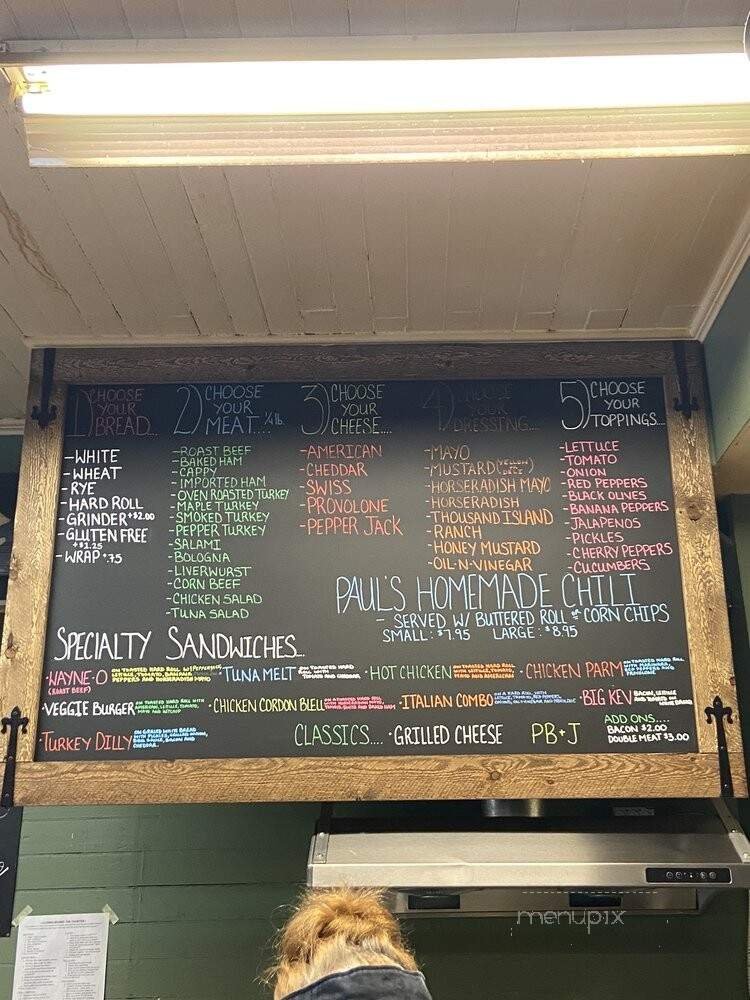 1) CHOOSE YOUR BREAD...
-WHITE
-WHEAT
-RYE
-HARD ROLL
-GRINDER +$2.00
-GLUTEN FREE
+$1.25
-WRAP +.75
2) CHOOSE YOUR MEAT.... 1/4 lb.
-ROAST BEEF
-BAKED HAM
-CAPPY
-IMPORTED HAM
-OVEN ROASTED TURKEY
-MAPLE TURKEY
-SMOKED TURKEY
-PEPPER TURKEY
-SALAMI
-BOLOGNA
-LIVERWURST
-CORN BEEF
-CHICKEN SALAD
-TUNA SALAD
3) CHOOSE YOUR CHEESE....
-AMERICAN
-CHEDDAR
-SWISS
-PROVOLONE
-PEPPER JACK
4) CHOOSE YOUR DRESSING...
-MAYO
-MUSTARD
-HORSERADISH MAYO
-HORSERADISH
-THOUSAND ISLAND
-RANCH
-HONEY MUSTARD
-OIL-N-VINEGAR
5) CHOOSE YOUR TOPPINGS....
-LETTUCE
-TOMATO
-ONION
-RED PEPPERS
-BLACK OLIVES
-BANANA PEPPERS
-JALAPENOS
-PICKLES
-CHERRY PEPPERS
-CUCUMBERS
PAUL'S HOMEMADE CHILI
- SERVED W/ BUTTERED ROLL & CORN CHIPS
SMALL: $7.95 LARGE: $8.95
SPECIALTY SANDWICHES...
·WAYNE-O (ROAST BEEF) ON TOASTED HARD ROLL W/ LETTUCE, TOMATO, BANANA PEPPERS AND HORSERADISH MAYO
·TUNA MELT ON TOASTED HARD ROLL WITH TOMATO AND CHEDDAR
·HOT CHICKEN ON TOASTED HARD ROLL WITH LETTUCE, TOMATO, MAYO AND AMERICAN
·CHICKEN PARM ON TOASTED HARD ROLL WITH MARINARA, RED PEPPERS AND PROVOLONE
·VEGGIE BURGER ON TOASTED HARD ROLL WITH LETTUCE, TOMATO, MAYO AND KETCHUP
·CHICKEN CORDON BLEU
·ITALIAN COMBO ON A HARD ROLL WITH LETTUCE, TOMATO, RED PEPPERS,
·BIG KEV BACON, LETTUCE AND TOMATO ON WHITE BREAD
·TURKEY DILLY ON GRILLED WHITE BREAD WITH PICKLES, BACON AND CHEDDAR
CLASSICS.... ·GRILLED CHEESE PB+J
ADD ONS....
BACON $2.00
DOUBLE MEAT $3.00
menupix